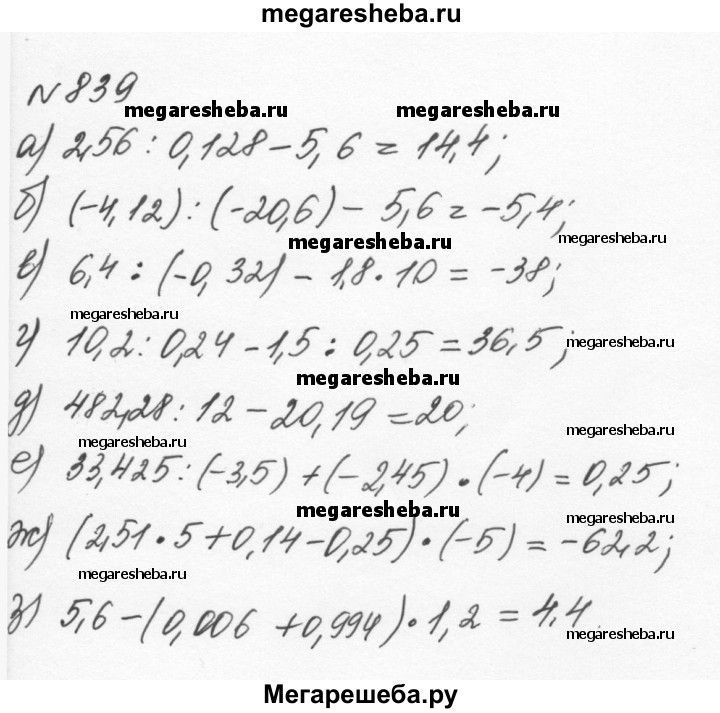 megaresheba.ru
№ 839
megaresheba.ru megaresheba.ru
а) 2,56 : 0,128 - 5,6 = 14,4;
б) (-4,12) : (-20,6) - 5,6 = -5,4;
megaresheba.ru megaresheba.ru
в) 6,4 : (-0,32) - 1,8 · 10 = -38;
megaresheba.ru
г) 10,2 : 0,24 - 1,5 : 0,25 = 36,5;
megaresheba.ru
megaresheba.ru
д) 482,28 : 12 - 20,19 = 20;
megaresheba.ru
megaresheba.ru
е) 33,425 : (-3,5) + (-2,45) · (-4) = 0,25;
megaresheba.ru
megaresheba.ru
ж) (2,51 · 5 + 0,14 - 0,25) · (-5) = -62,2;
megaresheba.ru
з) 5,6 - (0,006 + 0,994) · 1,2 = 4,4
megaresheba.ru
Мегарешеба.ру